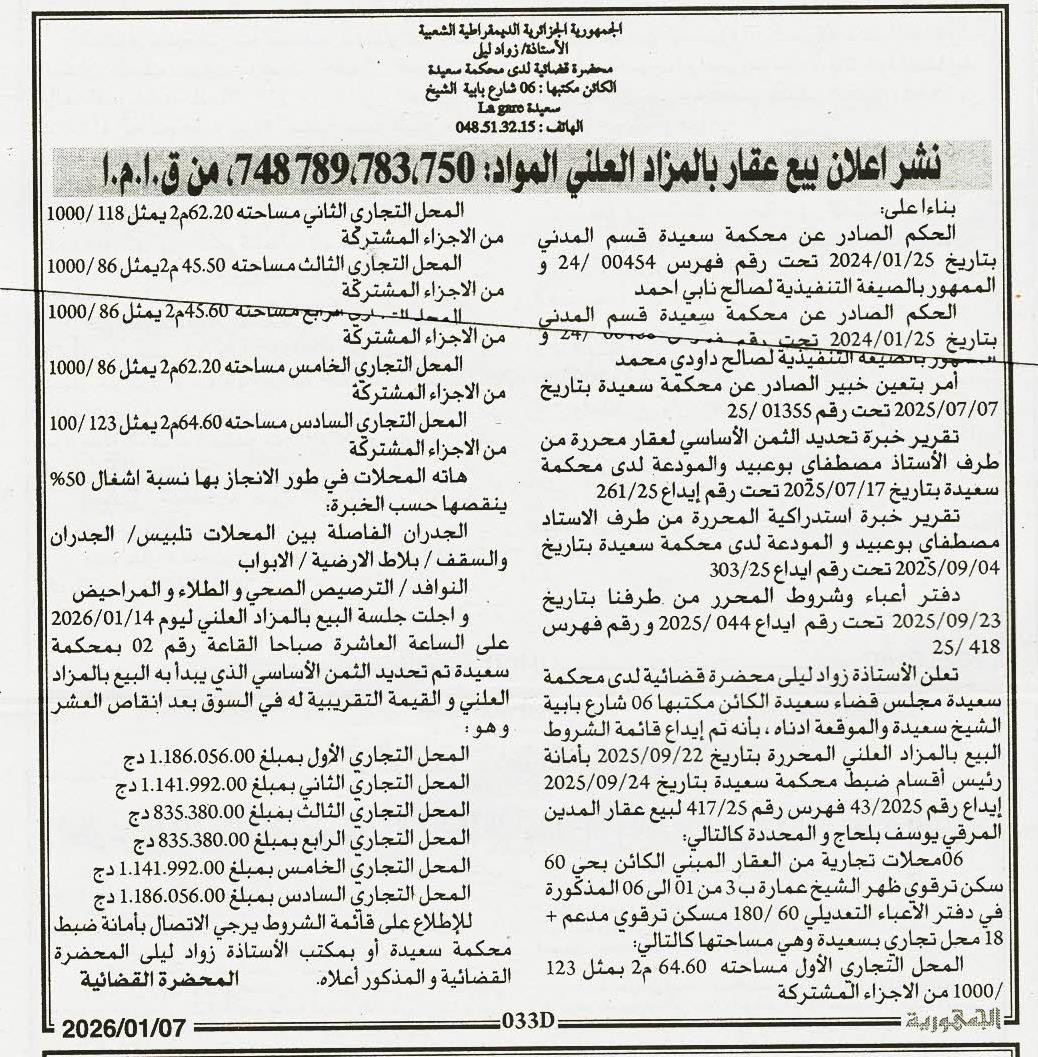 الجمهورية الجزائرية الديمقراطية الشعبية
الأستاذة/ زواد ليلى
محضرة قضائية لدى محكمة سعيدة
الكائن مكتبها : 06 شارع بابية الشيخ
سعيدة La gare
الهاتف : 048.51.32.15
نشر اعلان بيع عقار بالمزاد العلني المواد: 748 789،783،750، من ق.ا.م.ا
بناءا على:
الحكم الصادر عن محكمة سعيدة قسم المدني
بتاريخ 2024/01/25 تحت رقم فهرس 00454 /24 و
الممهور بالصيغة التنفيذية لصالح نابي احمد
الحكم الصادر عن محكمة سعيدة قسم المدني
بتاريخ 2024/01/25 تحت رقم فهرس /24 و
الممهور بالصيغة التنفيذية لصالح داودي محمد
أمر بتعين خبير الصادر عن محكمة سعيدة بتاريخ
2025/07/07 تحت رقم 01355 /25
تقرير خبرة تحديد الثمن الأساسي لعقار محررة من
طرف الأستاذ مصطفاي بوعبيد والمودعة لدى محكمة
سعيدة بتاريخ 2025/07/17 تحت رقم إيداع 261/25
تقرير خبرة استدراكية المحررة من طرف الاستاد
مصطفاي بوعبيد و المودعة لدى محكمة سعيدة بتاريخ
2025/09/04 تحت رقم ايداع 303/25
دفتر أعباء وشروط المحرر من طرفنا بتاريخ
2025/09/23 تحت رقم ايداع 044 /2025 و رقم فهرس
418 /25
تعلن الأستاذة زواد ليلى محضرة قضائية لدى محكمة
سعيدة مجلس قضاء سعيدة الكائن مكتبها 06 شارع بابية
الشيخ سعيدة والموقعة ادناه ، بأنه تم إيداع قائمة الشروط
البيع بالمزاد العلني المحررة بتاريخ 2025/09/22 بأمانة
رئيس أقسام ضبط محكمة سعيدة بتاريخ 2025/09/24
إيداع رقم 43/2025 فهرس رقم 417/25 لبيع عقار المدين
المرقي يوسف بلحاج و المحددة كالتالي:
06محلات تجارية من العقار المبني الكائن بحي 60
سكن ترقوي ظهر الشيخ عمارة ب 3 من 01 الى 06 المذكورة
في دفتر الأعباء التعديلي 60 /180 مسكن ترقوي مدعم +
18 محل تجاري بسعيدة وهي مساحتها كالتالي:
المحل التجاري الأول مساحته 64.60 م2 بمثل 123
/1000 من الاجزاء المشتركة
المحل التجاري الثاني مساحته 62.20م2 يمثل 118 /1000
من الاجزاء المشتركة
المحل التجاري الثالث مساحته 45.50 م2يمثل 86 /1000
من الاجزاء المشتركة
المحل التجاري الرابع مساحته 45.60م2 يمثل 86 /1000
من الاجزاء المشتركة
المحل التجاري الخامس مساحته 62.20م2 يمثل 86 /1000
من الاجزاء المشتركة
المحل التجاري السادس مساحته 64.60م2 يمثل 123 /100
من الاجزاء المشتركة
هاته المحلات في طور الانجاز بها نسبة اشغال 50%
ينقصها حسب الخبرة:
الجدران الفاصلة بين المحلات تلبيس/ الجدران
والسقف / بلاط الارضية / الابواب
النوافد / الترصيص الصحي و الطلاء و المراحيض
و اجلت جلسة البيع بالمزاد العلني ليوم 2026/01/14
على الساعة العاشرة صباحا القاعة رقم 02 بمحكمة
سعيدة تم تحديد الثمن الأساسي الذي يبدأ به البيع بالمزاد
العلني و القيمة التقريبية له في السوق بعد انقاص العشر
و هو :
المحل التجاري الأول بمبلغ 1.186.056.00 دج
المحل التجاري الثاني بمبلغ 1.141.992.00 دج
المحل التجاري الثالث بمبلغ 835.380.00 دج
المحل التجاري الرابع بمبلغ 835.380.00 دج
المحل التجاري الخامس بمبلغ 1.141.992.00 دج
المحل التجاري السادس بمبلغ 1.186.056.00 دج
للإطلاع على قائمة الشروط يرجي الاتصال بأمانة ضبط
محكمة سعيدة أو بمكتب الأستاذة زواد ليلى المحضرة
القضائية و المذكور أعلاه. المحضرة القضائية
الجمهورية 033D 2026/01/07